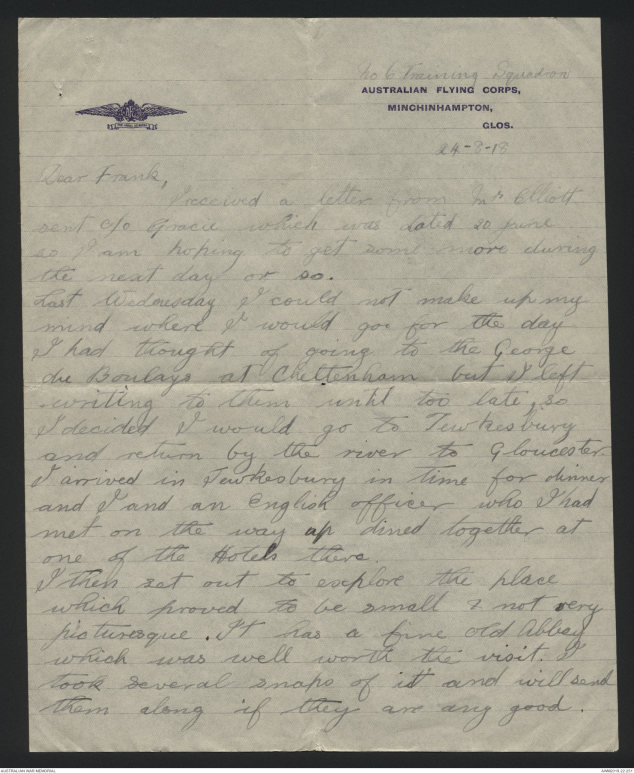 No 6 Training Squadron
AUSTRALIAN FLYING CORPS,
MINCHINHAMPTON,
GLOS.
24-8-18
Dear Frank,
I received a letter from Mrs Elliott
sent c/o Gracie which was dated 20 June
so I am hoping to get some more during
the next day or so.
Last Wednesday I could not make up my
mind where I would go for the day
I had thought of going to the George
du Boulays at Cheltenham but I left
writing to them until too late, so
I decided I would go to Tewkesbury
and return by the river to Gloucester.
I arrived in Tewkesbury in time for dinner
and I and an English officer who I had
met on the way up dined together at
one of the Hotels there.
I then set out to explore the place
which proved to be small & not very
picturesque. It has a fine old Abbey
which was well worth the visit. I
took several snaps of it and will send
them along if they are any good.
AUSTRALIAN WAR MEMORIAL